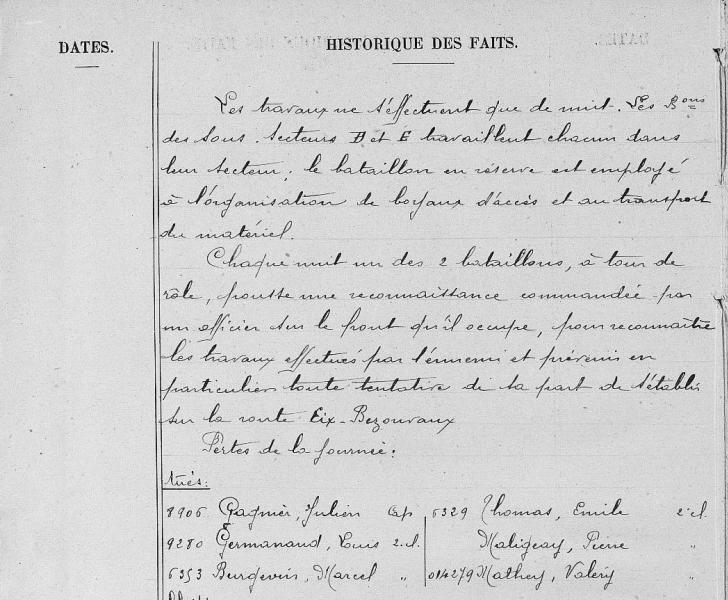 DATES.
HISTORIQUE DES FAITS.
Les travaux ne s'effectuent que de nuit. Les Bons
des sous-secteurs D et E travaillent chacun dans
leur secteur; le bataillon en réserve est employé
à l'organisation de boyaux d'accès et au transport
du matériel.
Chaque nuit un des 2 bataillons, à tour de
rôle, pousse une reconnaissance commandée par
un officier sur le front qu'il occupe, pour reconnaître
les travaux effectués par l'ennemi et prévenir en
particulier toute tentative de sa part de s'établir
sur la route Eix-Bezonvaux
Pertes de la journée:
Tués:
8906 Gagnier, Julien Cap 6329 Thomas, Emile 2 cl.
9280 Germanaud, Louis 2 cl. Maligeay, Pierre "
6353 Burgevin, Marcel " 014279 Mathey, Valéry "